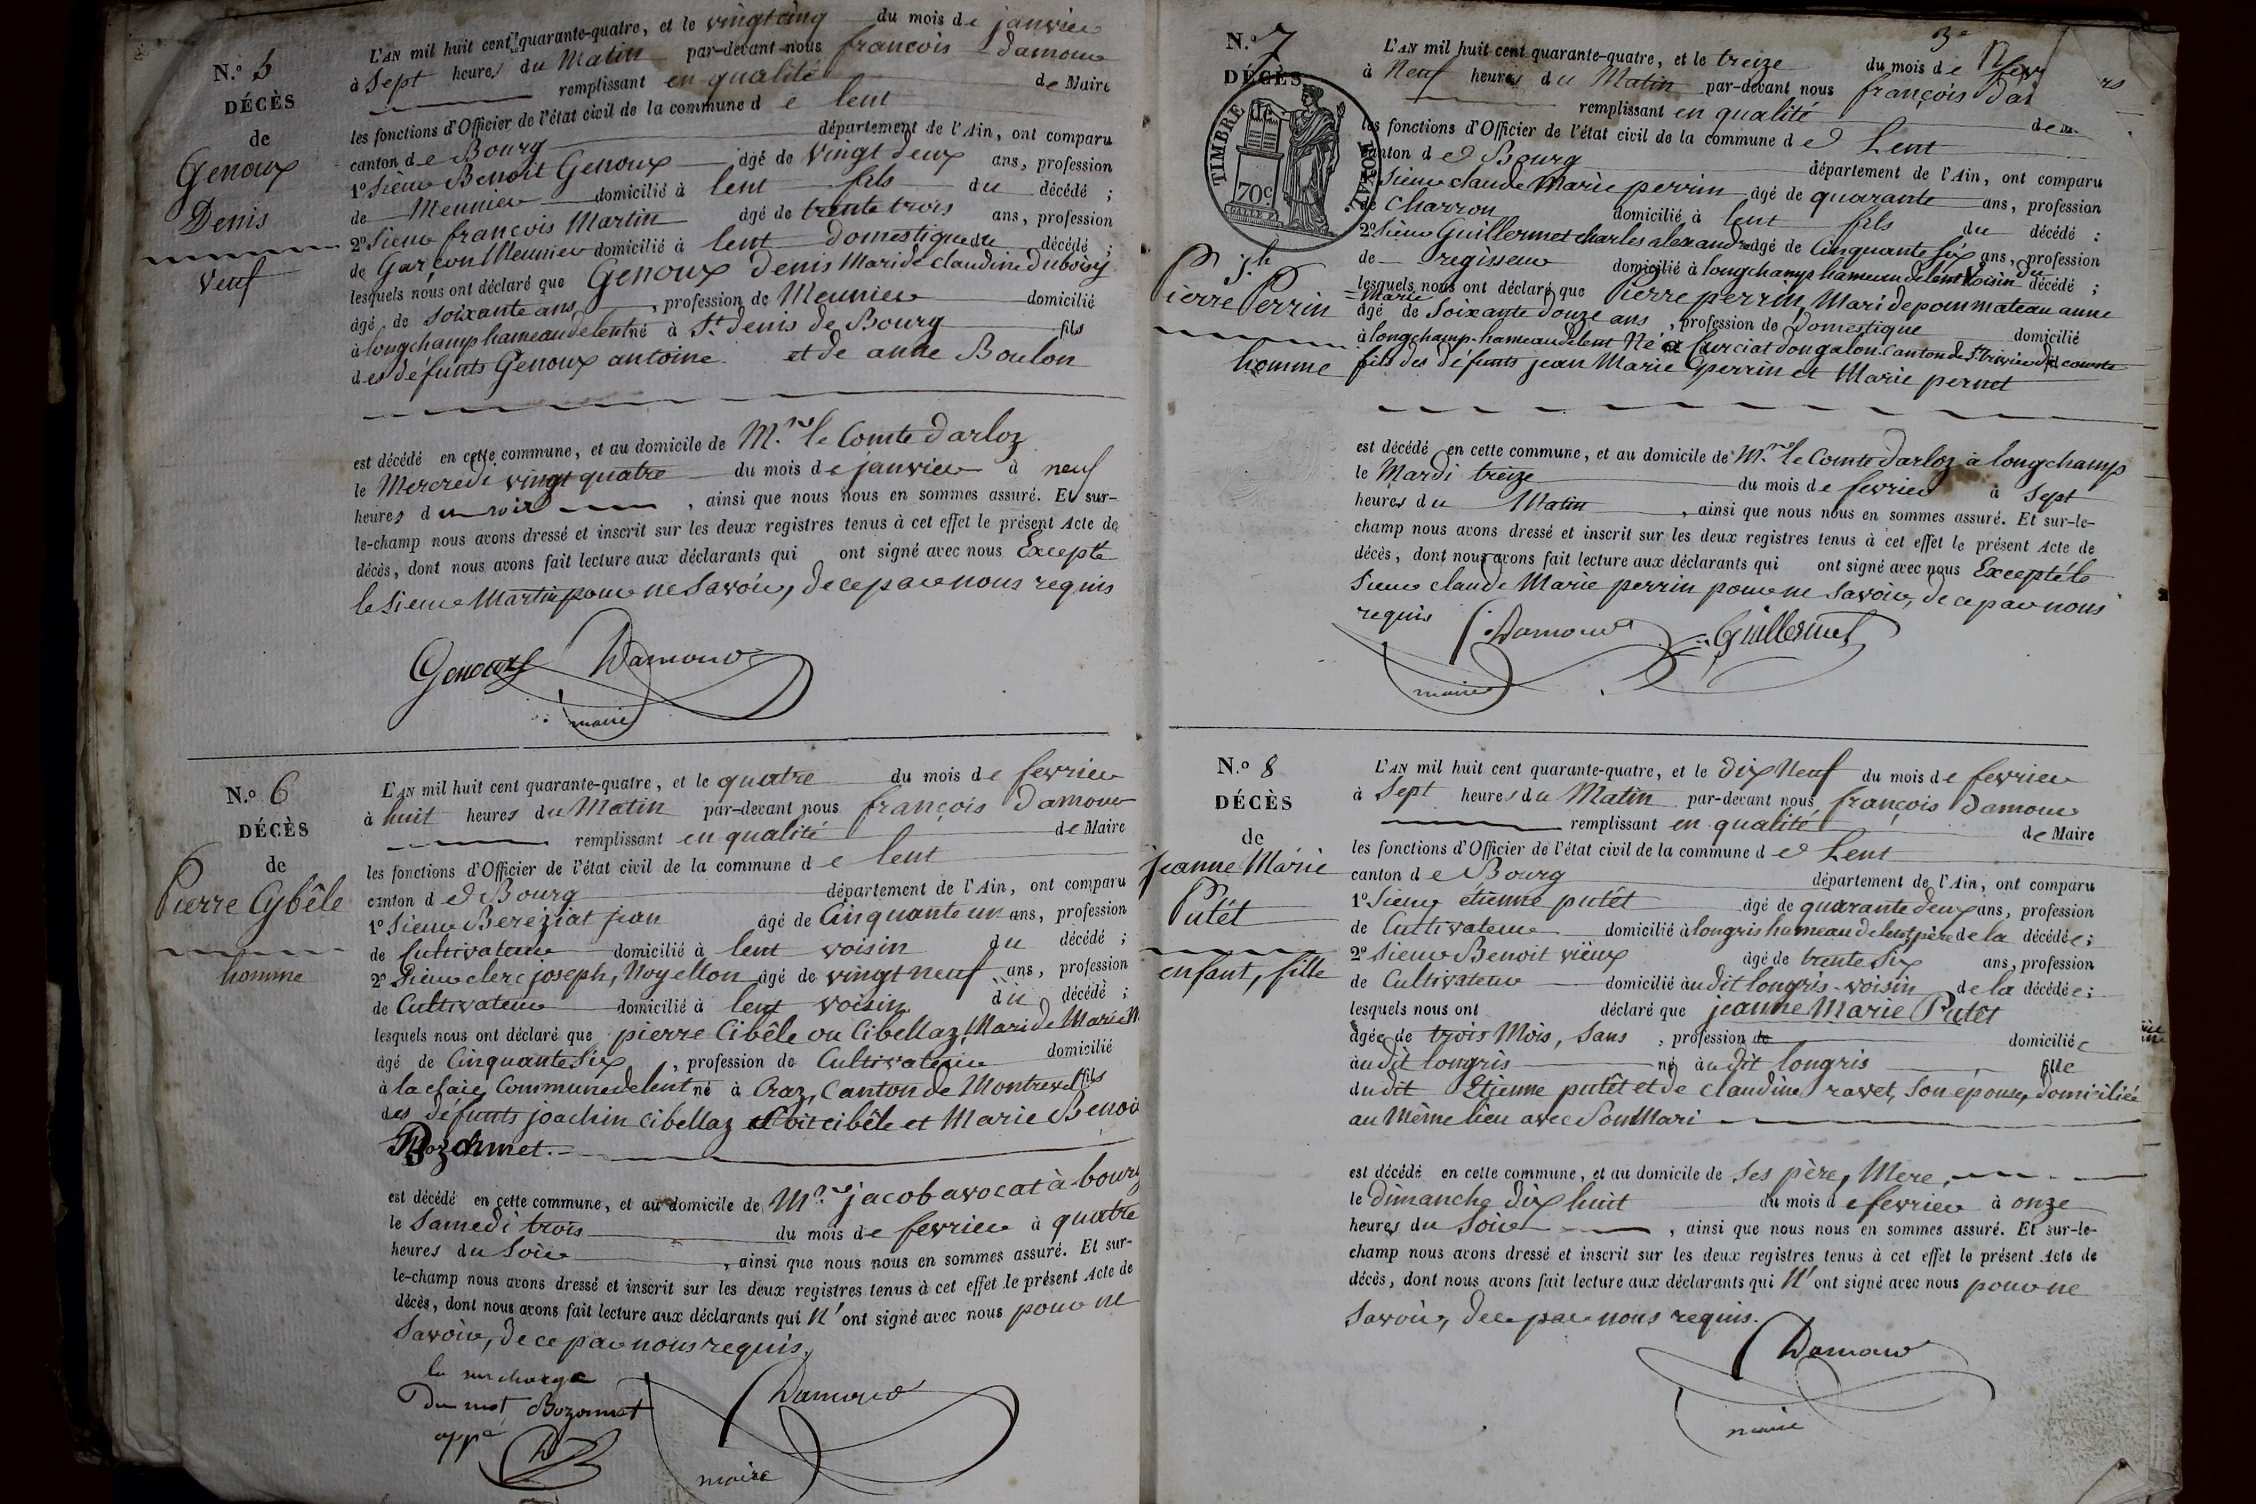 N.º 5
DÉCÈS
de
Genoux
Denis
Veuf
L'AN mil huit cent quarante-quatre, et le vingt cinq du mois de janvier
à Sept heures du Matin par-devant nous françois damour
remplissant en qualité de Maire
les fonctions d'Officier de l'état civil de la commune de lent
canton de Bourg département de l'Ain, ont comparu
1º Sieur Benoit Genoux âgé de vingt deux ans, profession
de Meunier domicilié à lent fils du décédé ;
2º Sieur françois Martin âgé de trente trois ans, profession
de Garçon Meunier domicilié à lent domestique du décédé ;
lesquels nous ont déclaré que Genoux denis Mari de claudine duboisy
âgé de soixante ans, profession de Meunier domicilié
à longchamp hameau de lent né à St denis de Bourg fils
des défunts Genoux antoine et de anne Boulon
est décédé en cette commune, et au domicile de Mr. le Comte darloz
le Mercredi vingt quatre du mois de janvier à neuf
heures du soir, ainsi que nous nous en sommes assuré. Et sur-
le-champ nous avons dressé et inscrit sur les deux registres tenus à cet effet le présent Acte de
décès, dont nous avons fait lecture aux déclarants qui ont signé avec nous Excepté
le Sieur Martin pour ne savoir, de ce par nous requis
Genoux Damour
maire
N.º 6
DÉCÈS
de
Pierre Cybêle
homme
L'AN mil huit cent quarante-quatre, et le quatre du mois de fevrier
à huit heures du Matin par-devant nous françois damour
remplissant en qualité de Maire
les fonctions d'Officier de l'état civil de la commune de lent
canton de Bourg département de l'Ain, ont comparu
1º Sieur Bereziat jean âgé de Cinquante un ans, profession
de Cultivateur domicilié à lent voisin du décédé ;
2º Sieur clerc joseph, Noyellon âgé de vingt neuf ans, profession
de Cultivateur domicilié à lent voisin du décédé ;
lesquels nous ont déclaré que pierre Cibêle ou Cibellaz, Mari de Marie
âgé de Cinquante Six, profession de Cultivateur domicilié
à la claie, Commune de lent né à Craz, Canton de Montrevel fils
des défunts joachin Cibellaz dit cibêle et Marie Benoit
Bozonnet.
est décédé en cette commune, et au domicile de Mr. jacob avocat à bourg
le Samedi trois du mois de fevrier à quatre
heures du Soir, ainsi que nous nous en sommes assuré. Et sur-
le-champ nous avons dressé et inscrit sur les deux registres tenus à cet effet le présent Acte de
décès, dont nous avons fait lecture aux déclarants qui n'ont signé avec nous pour ne
Savoir, de ce par nous requis.
la surcharge
Du mot Bozonnet
appé
D
Damour
maire
3e
N.º 7
DÉCÈS
TIMBRE ROYAL
70c
Pierre Perrin
homme
L'AN mil huit cent quarante-quatre, et le treize du mois de fevr
à Neuf heures du Matin par-devant nous françois da
remplissant en qualité de
les fonctions d'Officier de l'état civil de la commune de Lent
canton de Bourg département de l'Ain, ont comparu
Sieur claude Marie perrin âgé de quarante ans, profession
de Charron domicilié à lent fils du décédé ;
2º Sieur Guillermet charles alexandre âgé de Cinquante Six ans, profession
de regisseur domicilié à longchamp hameau de lent voisin du décédé ;
lesquels nous ont déclaré que Pierre perrin, Mari de pommateau anne
Marie
âgé de Soixante douze ans, profession de domestique domicilié
à longchamp hameau de lent Né à Curciat dongalon Canton de St trivier de courtes
fils des défunts jean Marie perrin et Marie pernet
est décédé en cette commune, et au domicile de Mr. le Comte darloz à longchamp
le Mardi treize du mois de fevrier à Sept
heures du Matin, ainsi que nous nous en sommes assuré. Et sur-le-
champ nous avons dressé et inscrit sur les deux registres tenus à cet effet le présent Acte de
décès, dont nous avons fait lecture aux déclarants qui ont signé avec nous Excepté le
Sieur claude Marie perrin pour ne Savoir, de ce par nous
requis Damour Guillermet
maire
N.º 8
DÉCÈS
de
jeanne Marie
Putêt
enfant, fille
L'AN mil huit cent quarante-quatre, et le dix Neuf du mois de fevrier
à Sept heures du Matin par-devant nous françois damour
remplissant en qualité de Maire
les fonctions d'Officier de l'état civil de la commune de Lent
canton de Bourg département de l'Ain, ont comparu
1º Sieur étienne putêt âgé de quarante deux ans, profession
de Cultivateur domicilié à longris hameau de lent, père de la décédée ;
2º Sieur Benoit vieux âgé de trente Six ans, profession
de Cultivateur domicilié audit longris voisin de la décédée ;
lesquels nous ont déclaré que jeanne Marie Putêt
âgée de trois Mois, Sans profession de domiciliée
audit longris né audit longris fille
dudit Etienne putêt et de claudine ravet, Son épouse, domiciliée
au Même lieu avec Son Mari
est décédé en cette commune, et au domicile de Ses père, Mere,
le dimanche dix huit du mois de fevrier à onze
heures du Soir, ainsi que nous nous en sommes assuré. Et sur-le-
champ nous avons dressé et inscrit sur les deux registres tenus à cet effet le présent Acte de
décès, dont nous avons fait lecture aux déclarants qui N'ont signé avec nous pour ne
Savoir, de ce par nous requis.
Damour
maire